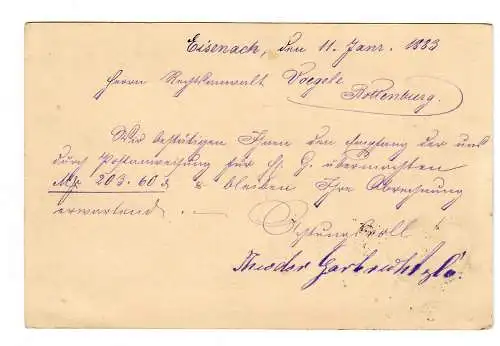 Eisenach, den 11. Janr. 1883
Herrn Rechtsanwalt Voegele
Rottenburg.
Wir bestätigen Ihnen den Empfang der uns
durch Postanweisung für G. übermachten
Mk. 203.60 & bleiben Ihre Abrechnung
erwartend.
Achtungsvoll
Theodor